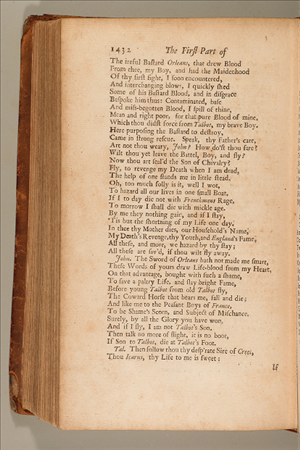 1432 The First Part of
The ireful Bastard Orleans, that drew Blood
From thee, my Boy, and had the Maidenhood
Of thy first fight, I soon encountered,
And interchanging blows, I quickly shed
Some of his Bastard Blood, and in disgrace
Bespoke him thus: Contaminated, base
And miss-begotten Blood, I spill of thine,
Mean and right poor, for that pure Blood of mine,
Which thou didst force from Talbot, my brave Boy.
Here purposing the Bastard to destroy,
Came in strong rescue. Speak, thy Father's care,
Art not thou weary, John? How do'st thou fare?
Wilt thou yet leave the Battel, Boy, and fly?
Now thou art seal'd the Son of Chivalry?
Fly, to revenge my Death when I am dead,
The help of one stands me in little stead.
Oh, too much folly is it, well I wot,
To hazard all our lives in one small Boat.
If I to day die not with Frenchmens Rage,
To morrow I shall die with mickle age.
By me they nothing gain, and if I stay,
'Tis but the shortning of my Life one day.
In thee thy Mother dies, our Houshold's Name,
My Death's Revenge, thy Youth, and England's Fame;
All these, and more, we hazard by thy stay;
All these are sav'd, if thou wilt fly away.
John. The Sword of Orleans hath not made me smart,
These Words of yours draw Life-blood from my Heart.
On that advantage, bought with such a shame,
To save a paltry Life, and slay bright Fame,
Before young Talbot from old Talbot fly,
The Coward Horse that bears me, fall and die;
And like me to the Peasant Boys of France,
To be Shame's Scorn, and Subject of Mischance.
Surely, by all the Glory you have won,
And if I fly, I am not Talbot's Son.
Then talk no more of flight, it is no boot,
If Son to Talbot, die at Talbot's Foot.
Tal. Then follow thou thy desp'rate Sire of Creet,
Thou Icarus, thy Life to me is sweet:
If